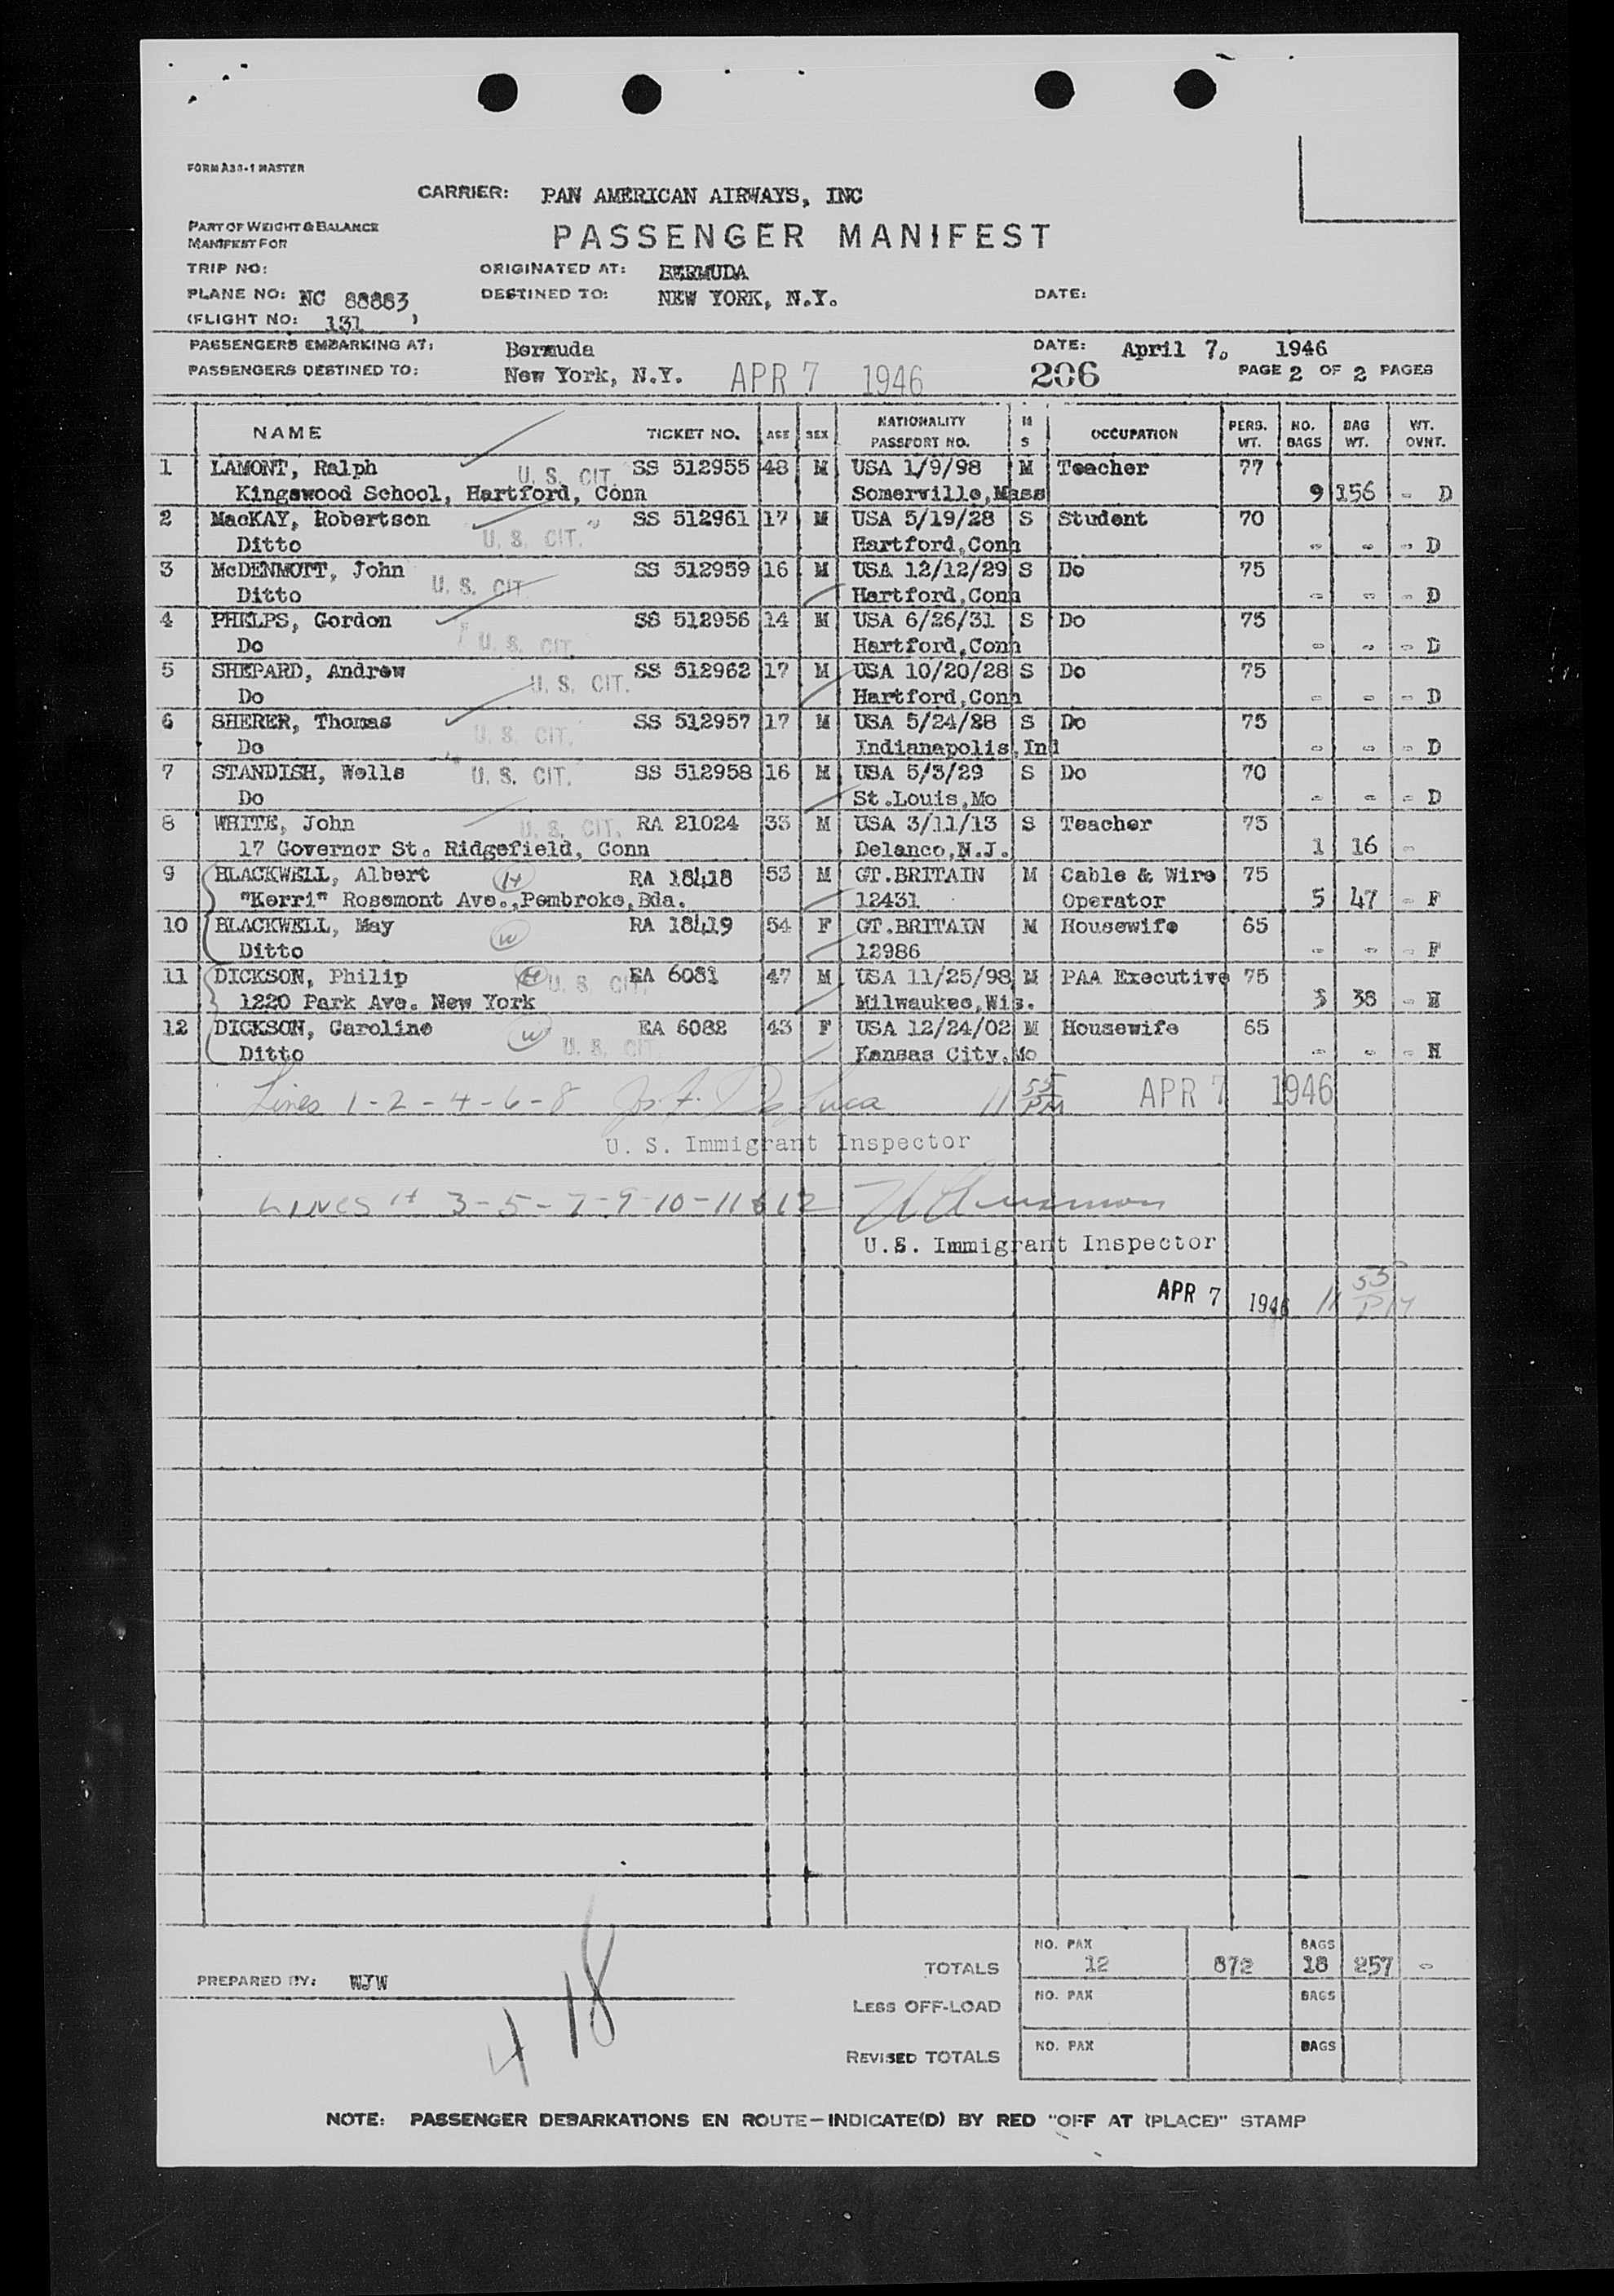 FORM A30-1 MASTER
CARRIER: PAN AMERICAN AIRWAYS, INC
PART OF WEIGHT & BALANCE
MANIFEST FOR
PASSENGER MANIFEST
TRIP NO: ORIGINATED AT: BERMUDA
PLANE NO: NC 88883 DESTINED TO: NEW YORK, N.Y. DATE:
(FLIGHT NO: 131 )
PASSENGERS EMBARKING AT: Bermuda DATE: April 7, 1946
PASSENGERS DESTINED TO: New York, N.Y. APR 7 1946 206 PAGE 2 OF 2 PAGES
NAME TICKET NO. AGE SEX NATIONALITY PASSPORT NO. M S OCCUPATION PERS. WT. NO. BAGS BAG WT. WT. OVNT.
1 LAMONT, Ralph U. S. CIT. SS 512955 48 M USA 1/9/98 M Teacher 77
Kingswood School, Hartford, Conn Somerville,Mass 9 156 - D
2 MacKAY, Robertson SS 512961 17 M USA 5/19/28 S Student 70
Ditto U. S. CIT. Hartford,Conn - - - D
3 McDENMOTT, John U. S. CIT SS 512959 16 M USA 12/12/29 S Do 75
Ditto Hartford,Conn - - - D
4 PHELPS, Gordon SS 512956 14 M USA 6/26/31 S Do 75
Do U. S. CIT. Hartford,Conn - - - D
5 SHEPARD, Andrew U. S. CIT. SS 512962 17 M USA 10/20/28 S Do 75
Do Hartford,Conn - - - D
6 SHERER, Thomas U. S. CIT. SS 512957 17 M USA 5/24/28 S Do 75
Do Indianapolis,Ind - - - D
7 STANDISH, Wells U. S. CIT. SS 512958 16 M USA 5/3/29 S Do 70
Do St.Louis,Mo - - - D
8 WHITE, John U. S. CIT. RA 21024 33 M USA 3/11/13 S Teacher 75
17 Governor St. Ridgefield, Conn Delanco,N.J. 1 16 -
9 BLACKWELL, Albert H RA 18418 53 M GT.BRITAIN M Cable & Wire 75
"Kerri" Rosemont Ave.,Pembroke,Bda. 12431 Operator 5 47 - F
10 BLACKWELL, May W RA 18419 54 F GT.BRITAIN M Housewife 65
Ditto 12986 - - - F
11 DICKSON, Philip H U. S. CIT. EA 6081 47 M USA 11/25/98 M PAA Executive 75
1220 Park Ave. New York Milwaukee,Wis. 3 38 - N
12 DICKSON, Caroline W EA 6082 43 F USA 12/24/02 M Housewife 65
Ditto U. S. CIT. Kansas City,Mo - - - N
Lines 1-2-4-6-8 Jos. F. De Luca 11 55 PM APR 7 1946
U. S. Immigrant Inspector
LINES # 3-5-7-9-10-11 & 12
U.S. Immigrant Inspector
APR 7 1946 11 55 PM
NO. PAX BAGS
TOTALS 12 872 18 257 -
PREPARED BY: WJW
NO. PAX BAGS
LESS OFF-LOAD
NO. PAX BAGS
REVISED TOTALS
4 18
NOTE: PASSENGER DEBARKATIONS EN ROUTE—INDICATE(D) BY RED "OFF AT (PLACE)" STAMP